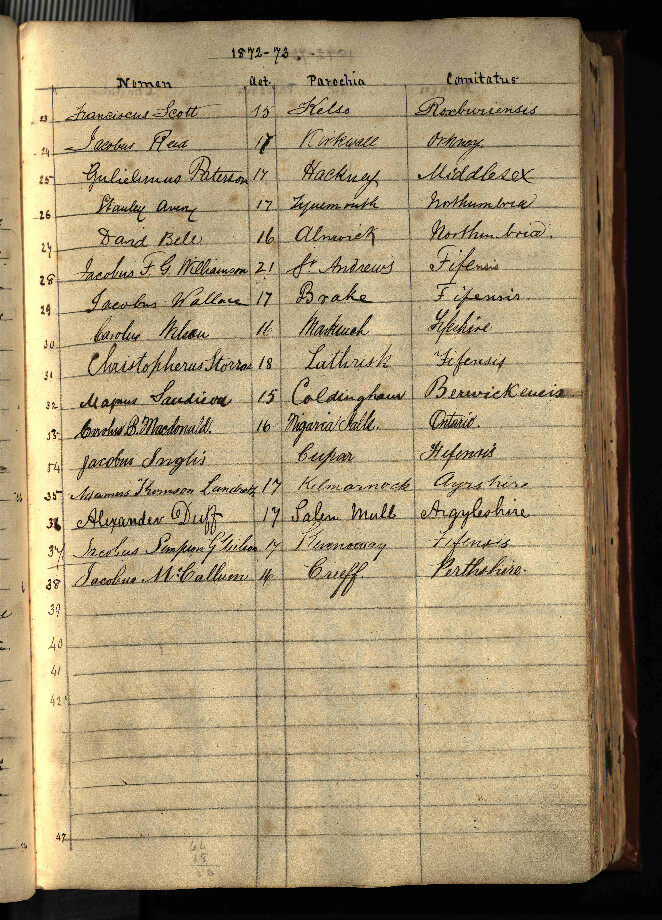 1872-73.
Nomen Aet. Parochia Comitatus
23 Franciscus Scott 15 Kelso Roxburiensis
24 Jacobus Reid 17 Kirkwall Orkney
25 Gulielmus Paterson 17 Hackney Middlesex
26 Stanley Avery 17 Tynemouth Northumbria
27 David Bell 16 Alnwick Northumbria.
28 Jacobus F. G. Williamson 21 St Andrews Fifensis
29 Jacobus Wallace 17 Brake Fifensis
30 Carolus Wilson 16 Markinch Fifeshire
31 Christopherus Storrar 18 Luthrish Fifensis
32 Magnus Sandison 15 Coldingham Berwickensis
33 Carolus B. Macdonald. 16 Nigaria Falls. Ontario.
34 Jacobus Inglis Cupar Fifensis
35 Thomson 17 Kilmarnock Ayrshire
36 Alexander Duff 17 Salen Mull Argyleshire
37 Jacobus Simpson 17 Kennoway Fifensis
38 Jacobus McCallum 16 Crieff. Perthshire.
39
40
41
42
47